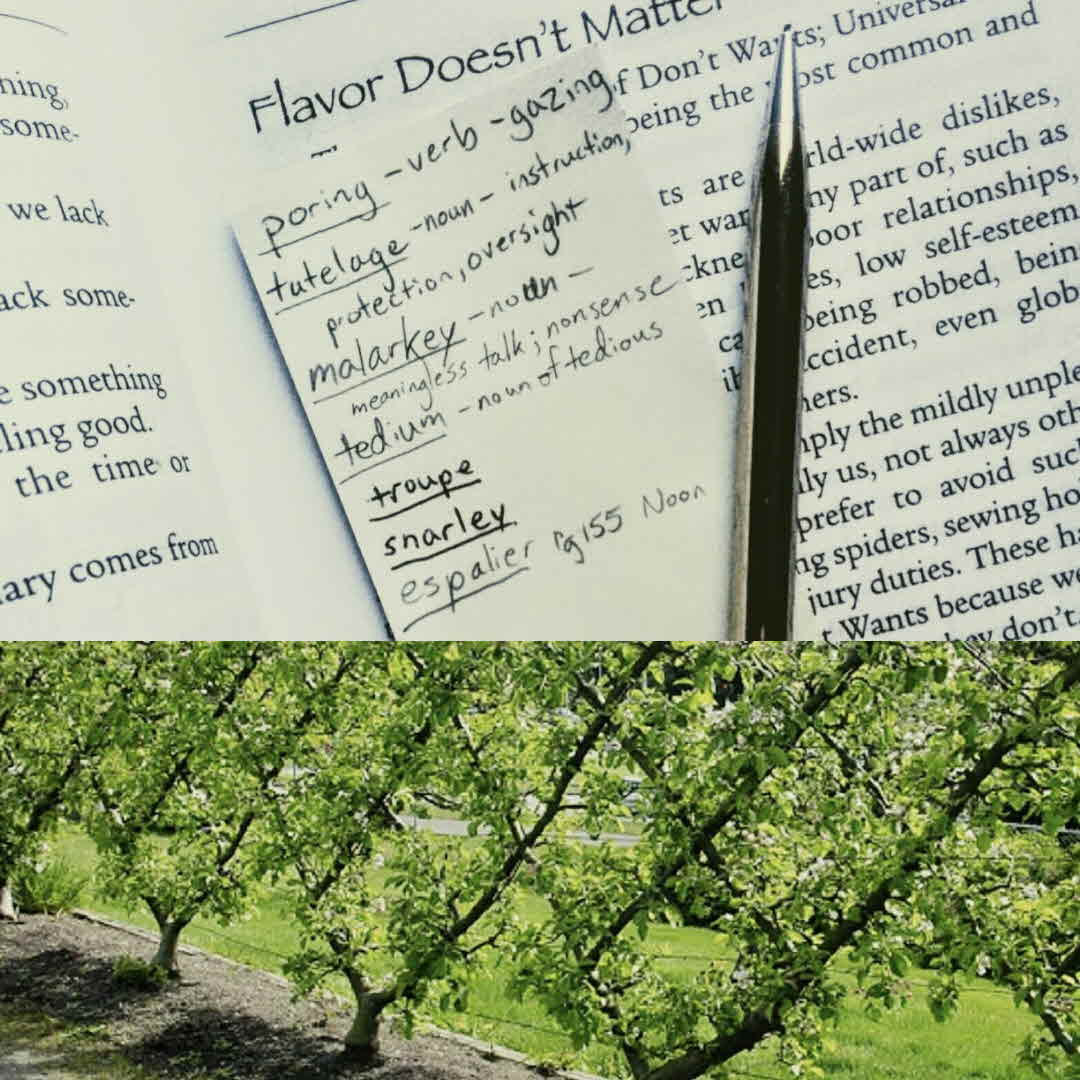 ning,
some-
we lack
ack some-
e something
ling good.
the time or
ary comes from
Flavor Doesn't Matter
f Don't Wants; Universal
being the most common and
ts are rld-wide dislikes,
et war ny part of, such as
ckne oor relationships,
en es, low self-esteem
ca being robbed, bein
ib ccident, even glob
ners.
ply the mildly unple
lly us, not always oth
prefer to avoid suc
ng spiders, sewing ho
jury duties. These ha
t Wants because we
hey don't.
poring - verb - gazing
tutelage - noun - instruction,
protection, oversight
malarkey - noun -
meaningless talk; nonsense
tedium - noun of tedious
troupe
snarley
espalier Pg 155 Noon